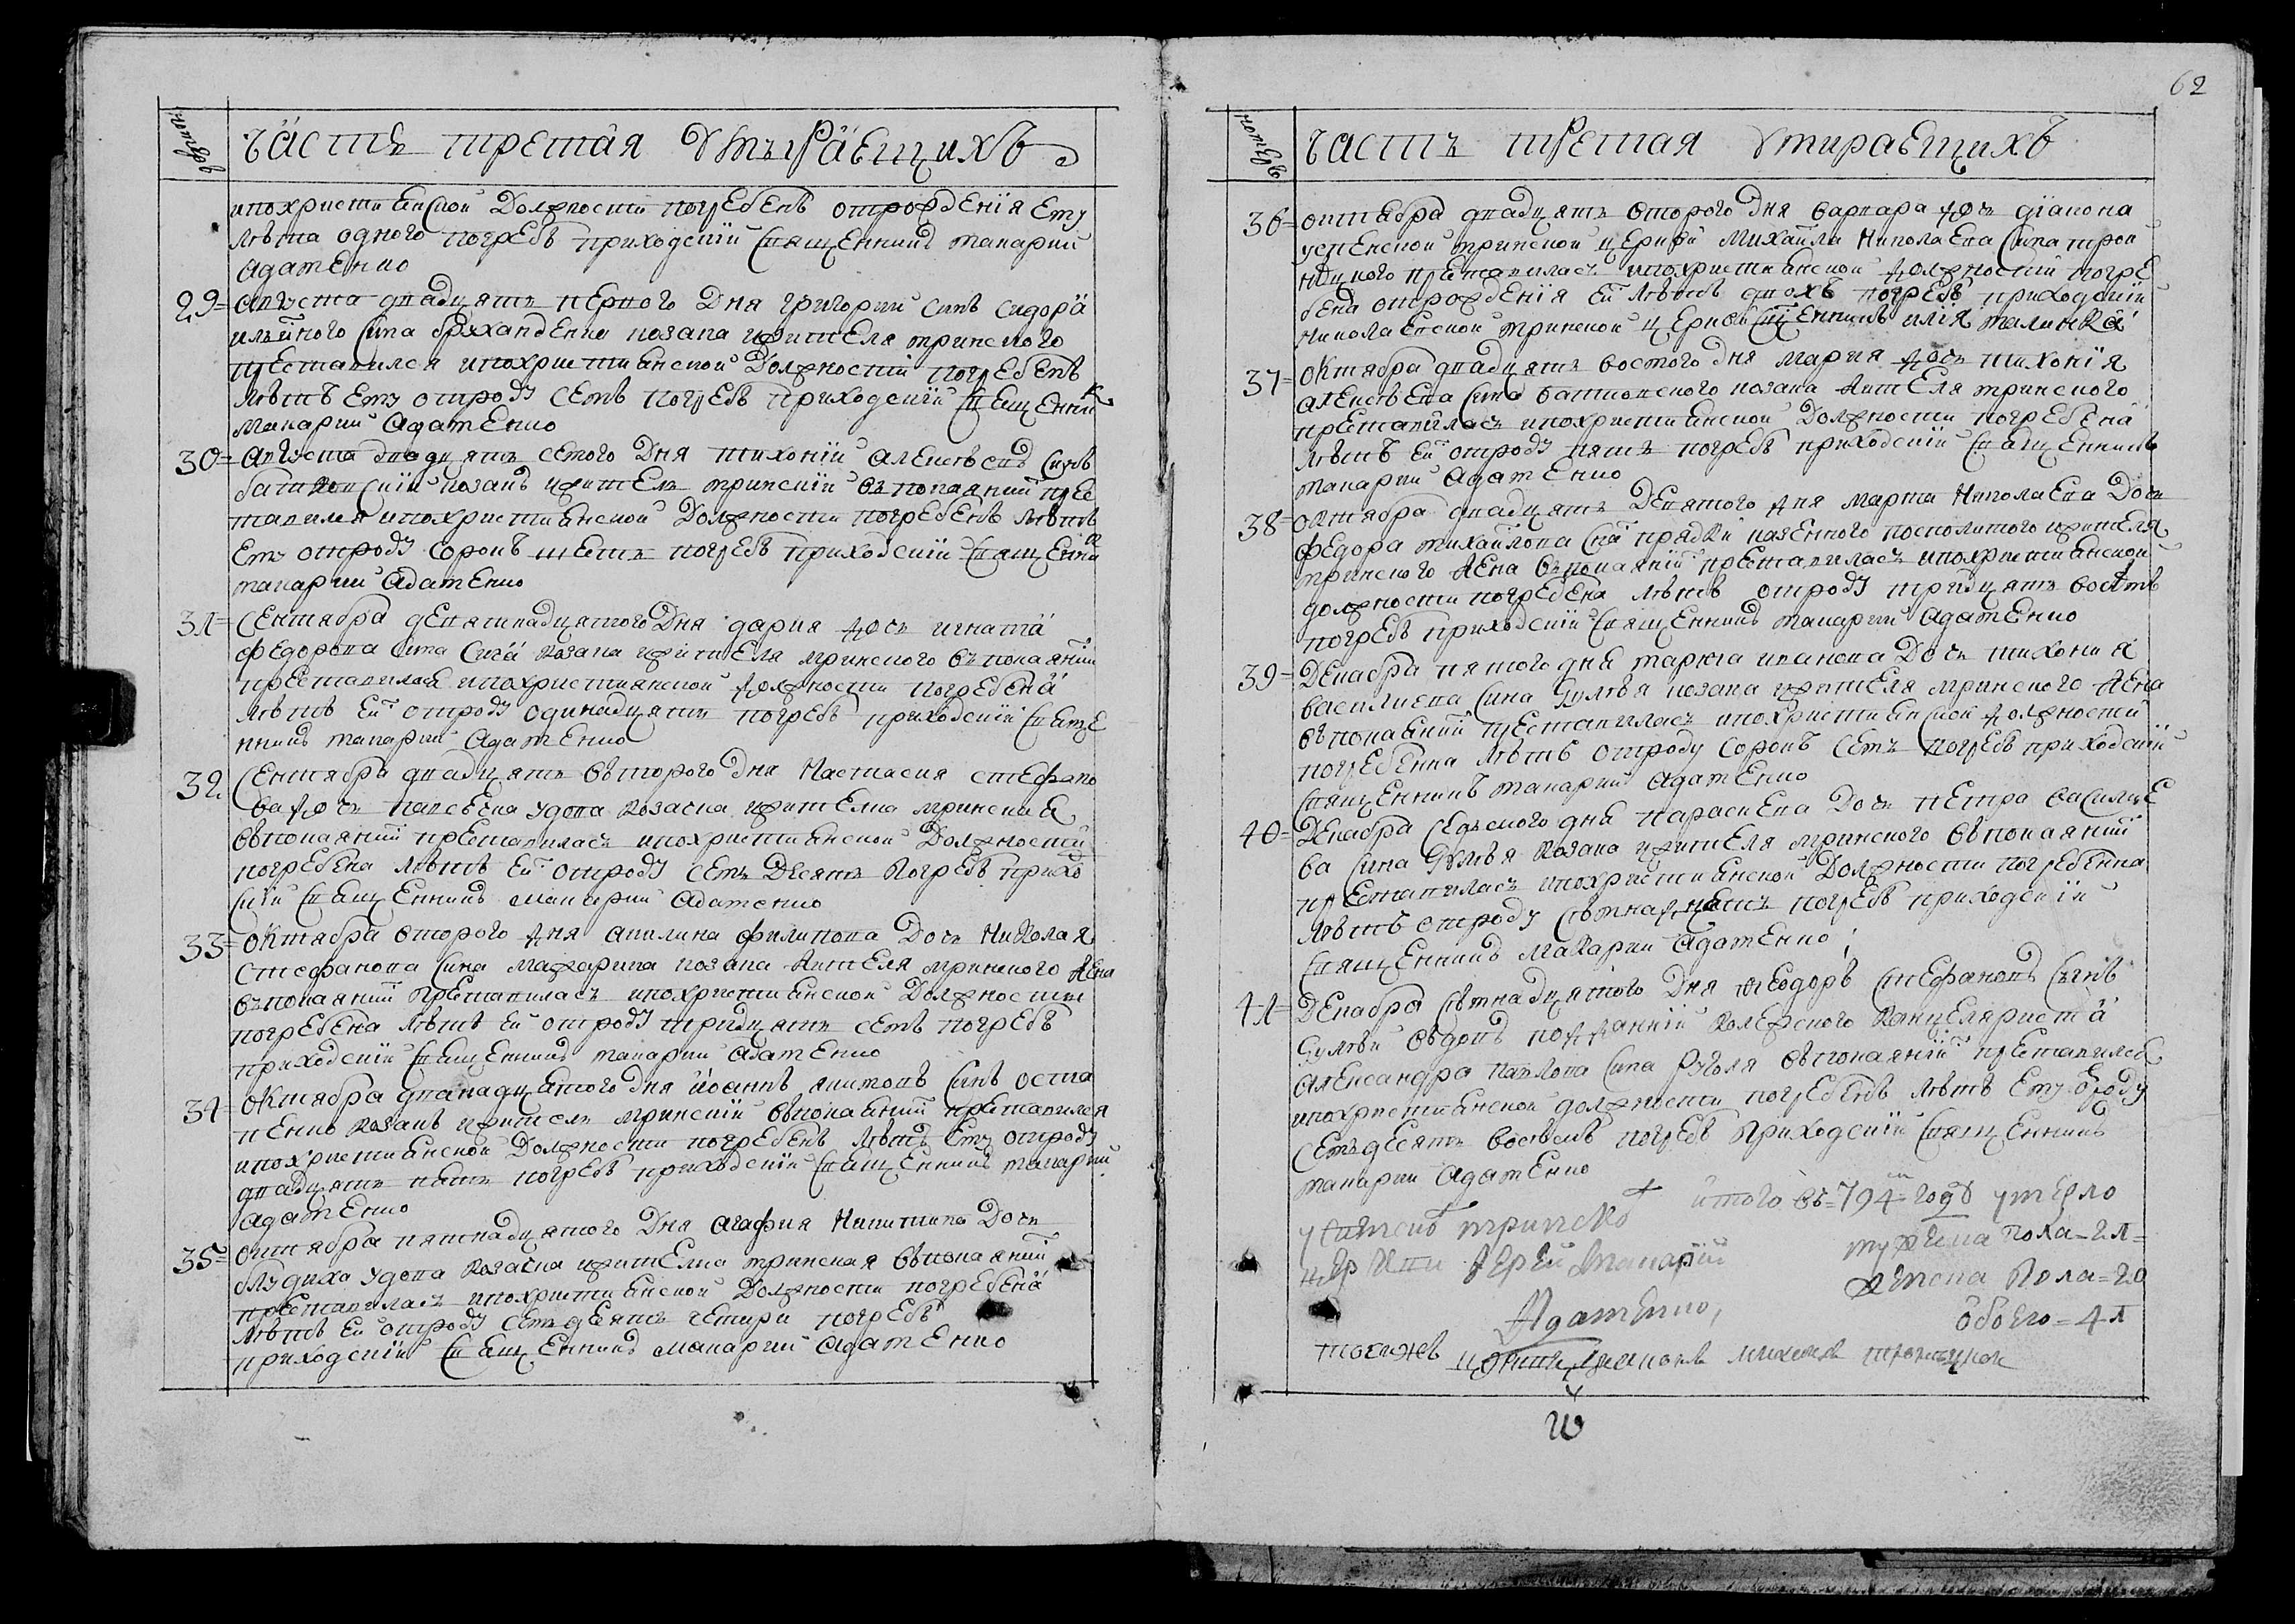 нумеръ
часть третая умъраещихъ
ипохристиянской должности погребенъ отрождения ему
лѣта одного погребъ приходский священникъ макарий
адаменко
29= августа двадцять первого дня григорий синъ сидора
преставился ипохристиянской должности погребенъ
лѣтъ ему отроду семъ погребъ приходский священник
макарий адаменко
30= августа двадцять семого дня тихоний алексѣевъ синъ
козакъ жителъ мринский въпокаянии прес
тавился ипохристиянской должности погребенъ лѣтъ
ему отроду сорокъ шесть погребъ приходский священни
макарий адаменко
31= сентября девятнадцятого дня дария дочъ игната
федорова сина козака жителя мринского въпокаянии
преставилася ипохристиянской должности погребена
лѣтъ ей отроду одинадцять погребъ приходский свяще
нникъ макарий адаменко
32 сентября двадцять второго дня настасия стефано
ва дочъ удова козачка жителка мринская
въпокаянии преставилась ипохристиянской должности
погребена лѣтъ ей отроду семъ десятъ погребъ прихо
ский священникъ макарий адаменко
33= октября второго дня акилина филипова дочъ николая
стефанова сина козака жителя мринского жена
въпокаянии преставилась ипохристиянской должности
погребена лѣтъ ей отроду тридцять семъ погребъ
приходский священникъ макарий адаменко
34= октября дванадцятого дня иоаннъ никитовъ синъ оста
пенко козакъ жителъ мринский въпокаянии преставился
ипохристиянской должности погребенъ лѣтъ ему отроду
двадцять пять погребъ приходский священникъ макарий
адаменко
35= октября пятнадцятого дня агафия никитина дочъ
удова козачка жителка мринская въпокаянии
преставилась ипохристиянской должности погребена
лѣтъ ей отроду семъдесятъ четири погребъ
приходский священникъ макарий адаменко
62
нумеръ
часть третая умираещихъ
36= октября двадцять второго дня варвара дочъ диякона
успенской мринской церкви михайла николаева сина трои
цкого преставилась ипохристиянской должности погре
бена отрождения ей лѣтъ двохъ погребъ приходский
николаевской мринской церкви священникъ илия
37= октября двадцять востого дня мария дочъ тихония
алексѣева сина козака жителя мринского
преставилась ипохристиянской должности погребена
лѣтъ ей отроду пять погребъ приходский священникъ
макарий адаменко
38= октября двадцять девятого дня марта николаева дочъ
федора михайлова сна прядки казенного посполитого жителя
мринского жена въпокаянии преставилась ипохристиянской
должности погребена лѣтъ отроду тридцять восмъ
погребъ приходский священникъ макарий адаменко
39= декабря пятого дня иванова дочъ тихония
василиева сина гулѣя козака жителя мринского жена
въпокаянии преставилась ипохристиянской должности
погребенна лѣтъ отроду сорокъ семъ погребъ приходский
священникъ макарий адаменко
40= декабря седъмого дня параскева дочъ петра василие
ва сина гулѣя козака жителя мринского въпокаянии
преставилась ипохристиянской должности погребенна
лѣтъ отроду сѣмнадцять погребъ приходский
священникъ макарий адаменко
41= декабря сѣмнадцятого дня феодоръ стефановъ сынъ
гулѣй вдовъ подданний колежского канцеляриста
александра павлова сина въпокаянии преставился
ипохристиянской должности погребенъ лѣтъ ему ѿроду
семъдесятъ восемъ погребъ приходский священникъ
макарий адаменко
итого въ=794м=годѣ умерло
успенской мринской
мужеска пола=21=
церкви иерей макарий
женска пола=20
адаменко,
обоего=41
тоеяжъ